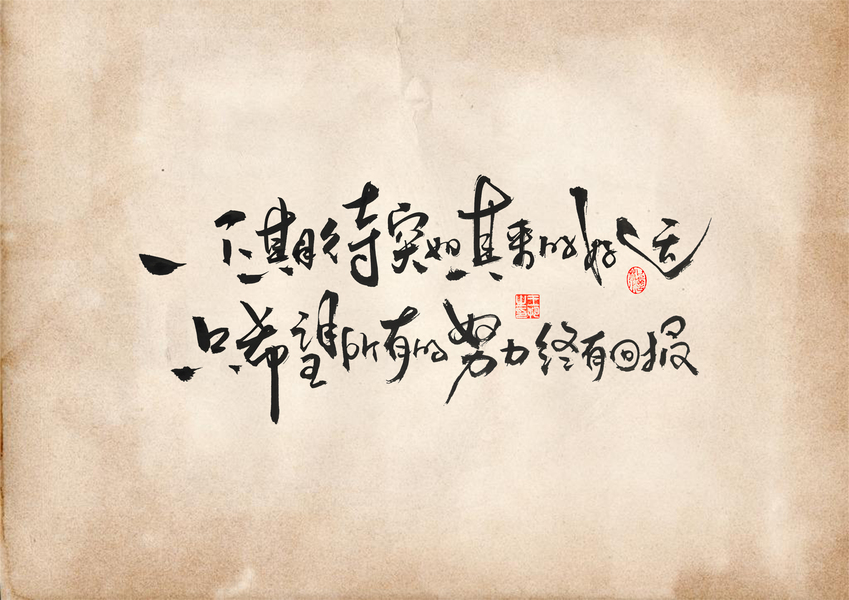 不期待突如其来的好运
只希望所有的努力终有回报